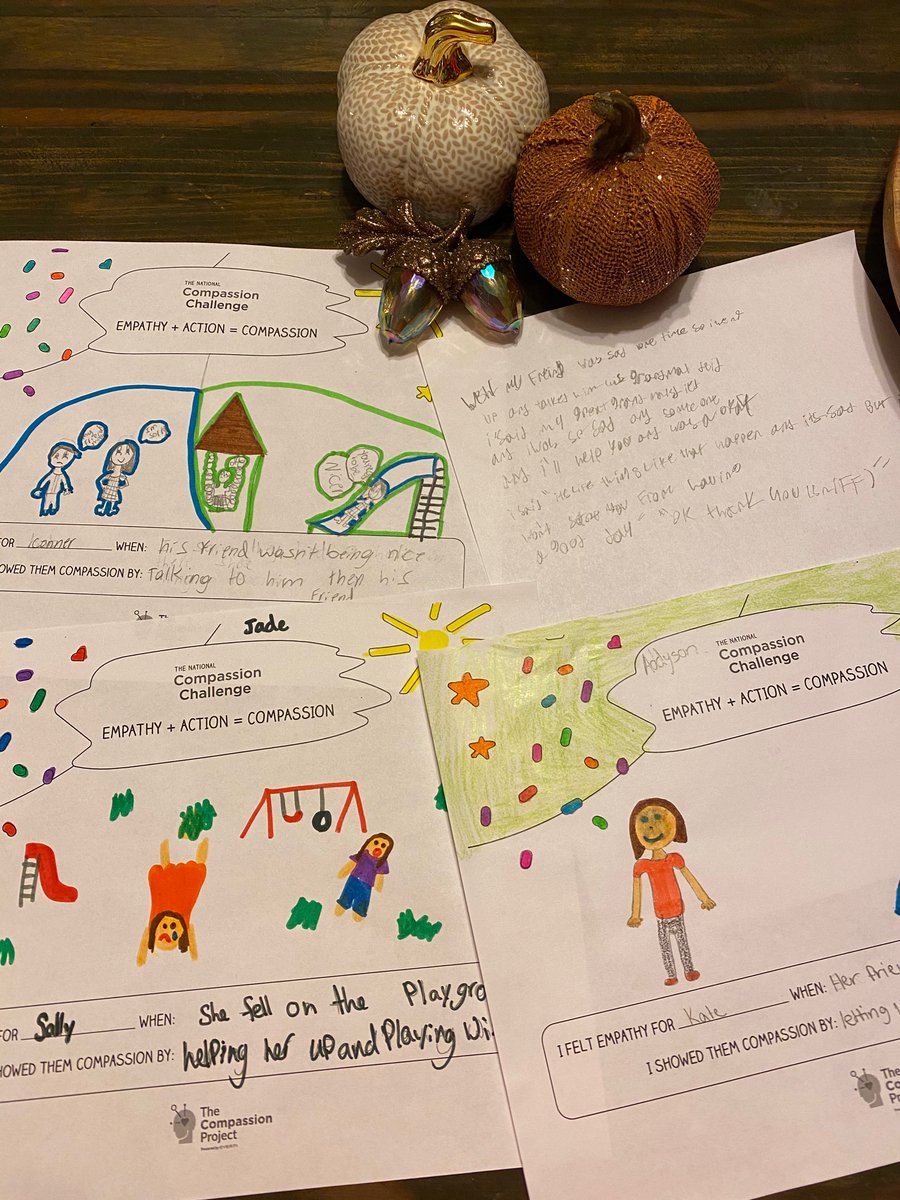 THE NATIONAL
Compassion
Challenge
EMPATHY + ACTION = COMPASSION
I'm sorry
NICE!
FOR Konner WHEN: his friend wasn't being nice
HOWED THEM COMPASSION BY: Talking to him then his
Friend
my Freind was sad one time so i went
up any talked him
i said my great
any i was so sad any someone
any i'll help you any was a okay
i said like that happen any its sad but
you From having
a good day "OK thank you (SNIFF)"
Jade
THE NATIONAL
Compassion
Challenge
EMPATHY + ACTION = COMPASSION
FOR Sally WHEN: She fell on the Playgro
HOWED THEM COMPASSION BY: helping her up and Playing wi
The
Compassion
Project
Addyson
THE NATIONAL
Compassion
Challenge
EMPATHY + ACTION = COMPASSION
I FELT EMPATHY FOR Kate WHEN: Her frie
I SHOWED THEM COMPASSION BY: letting
The
Co
Pro